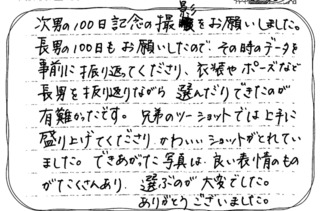 次男の100日記念の撮影をお願いしました。
長男の100日もお願いしたので、その時のデータを
事前に振り返ってくださり、衣装やポーズなど
長男を振り返りながら 選んだりできたのが
有難かったです。 兄弟のツーショットでは上手に
盛り上げてくださり かわいいショットがとれてい
ました。できあがった写真は、良い表情のもの
がたくさんあり、選ぶのが大変でした。
ありがとうございました。